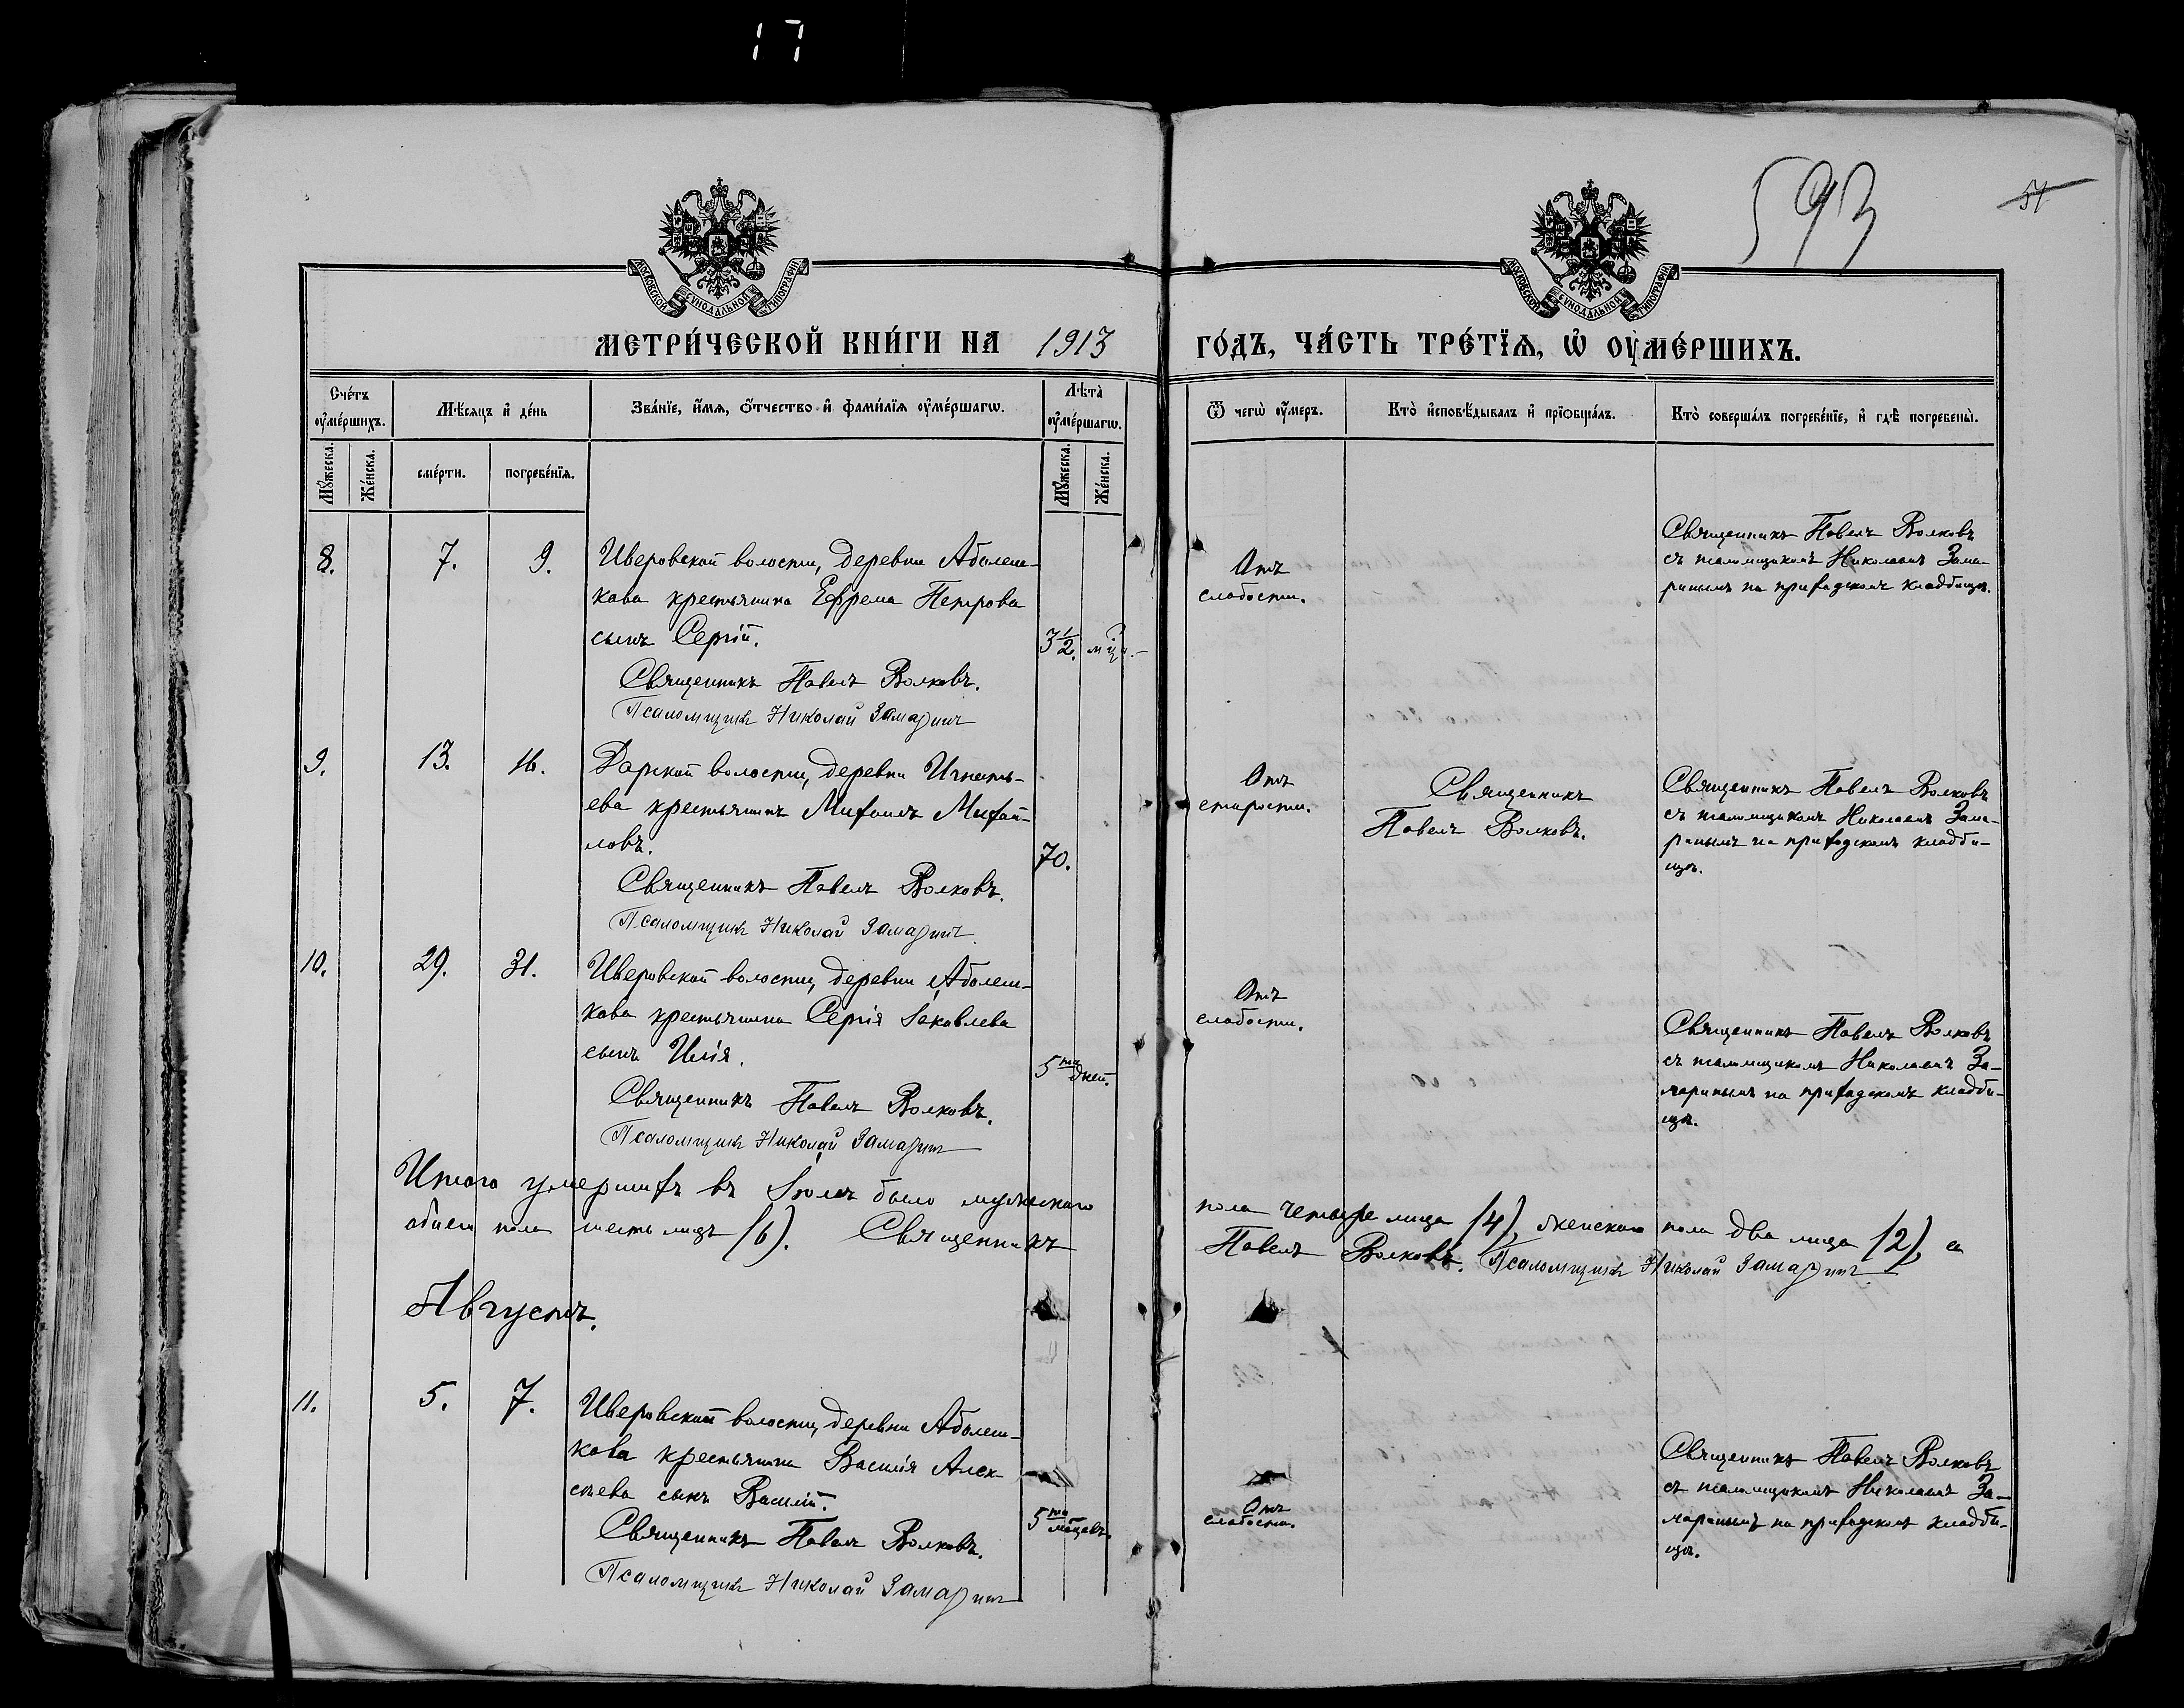 17
593
51
МОСКОВСКОЙ СѴНОДАЛЬНОЙ ТИПОГРАФІИ
МОСКОВСКОЙ СѴНОДАЛЬНОЙ ТИПОГРАФІИ
МЕТРИ́ЧЕСКОЙ КНИ́ГИ НА 1913 ГО́ДЪ, ЧА́СТЬ ТРЕ́ТЇѦ, Ѽ ОУ҆МЕ́РШИХЪ.
Сче́тъ оу҆ме́ршихъ.
Мѣ́сяцъ и҆ де́нь
Зва́нїе, и҆́мѧ, ѻ҆́тчество и҆ фами́лїѧ оу҆ме́ршагѡ.
Лѣ́та оу҆ме́ршагѡ.
Ѿ чегѡ̀ оу҆́меръ.
Кто̀ и҆сповѣ́дывалъ и҆ прїѡбща́лъ.
Кто̀ соверша́лъ погребе́нїе, и҆ гдѣ̀ погребены̀.
Мꙋ́жеска.
Же́нска.
сме́рти.
погребе́нїѧ.
Мꙋ́жеска.
Же́нска.
8.
7.
9.
Иверовской волости, деревни Аболеш-
кова крестьянина Ефрема Петрова
сынъ Сергій.
3½. мѣц.
Священникъ Павелъ Волковъ.
Псаломщикъ Николай Замаринъ
Отъ
слабости.
Священникъ Павелъ Волковъ
съ псаломщикомъ Николаемъ Зама-
ринымъ на приходскомъ кладбищѣ.
9.
13.
16.
Дарской волости, деревни Игнать-
ева крестьянинъ Михаилъ Михай-
ловъ.
70.
Священникъ Павелъ Волковъ.
Псаломщикъ Николай Замаринъ.
Отъ
старости.
Священникъ
Павелъ Волковъ.
Священникъ Павелъ Волковъ
съ псаломщикомъ Николаемъ Зама-
ринымъ на приходскомъ кладби-
щѣ.
10.
29.
31.
Иверовской волости, деревни Аболеш-
кова крестьянина Сергія Іаковлева
сынъ Илія.
5ти дней.
Священникъ Павелъ Волковъ.
Псаломщикъ Николай Замаринъ
Отъ
слабости.
Священникъ Павелъ Волковъ
съ псаломщикомъ Николаемъ За-
маринымъ на приходскомъ кладби-
щѣ.
Итого умершихъ въ Іюлѣ было мужескаго пола четыре лица (4), женскаго пола два лица (2), а
обоего пола шесть лицъ (6). Священникъ Павелъ Волковъ. Псаломщикъ Николай Замаринъ.
Августъ.
11.
5.
7.
Иверовской волости, деревни Аболеш-
кова крестьянина Василія Алек-
сѣева сынъ Василій.
5ти мѣсцевъ.
Священникъ Павелъ Волковъ.
Псаломщикъ Николай Замаринъ
Отъ
слабости.
Священникъ Павелъ Волковъ
съ псаломщикомъ Николаемъ За-
маринымъ на приходскомъ кладби-
щѣ.